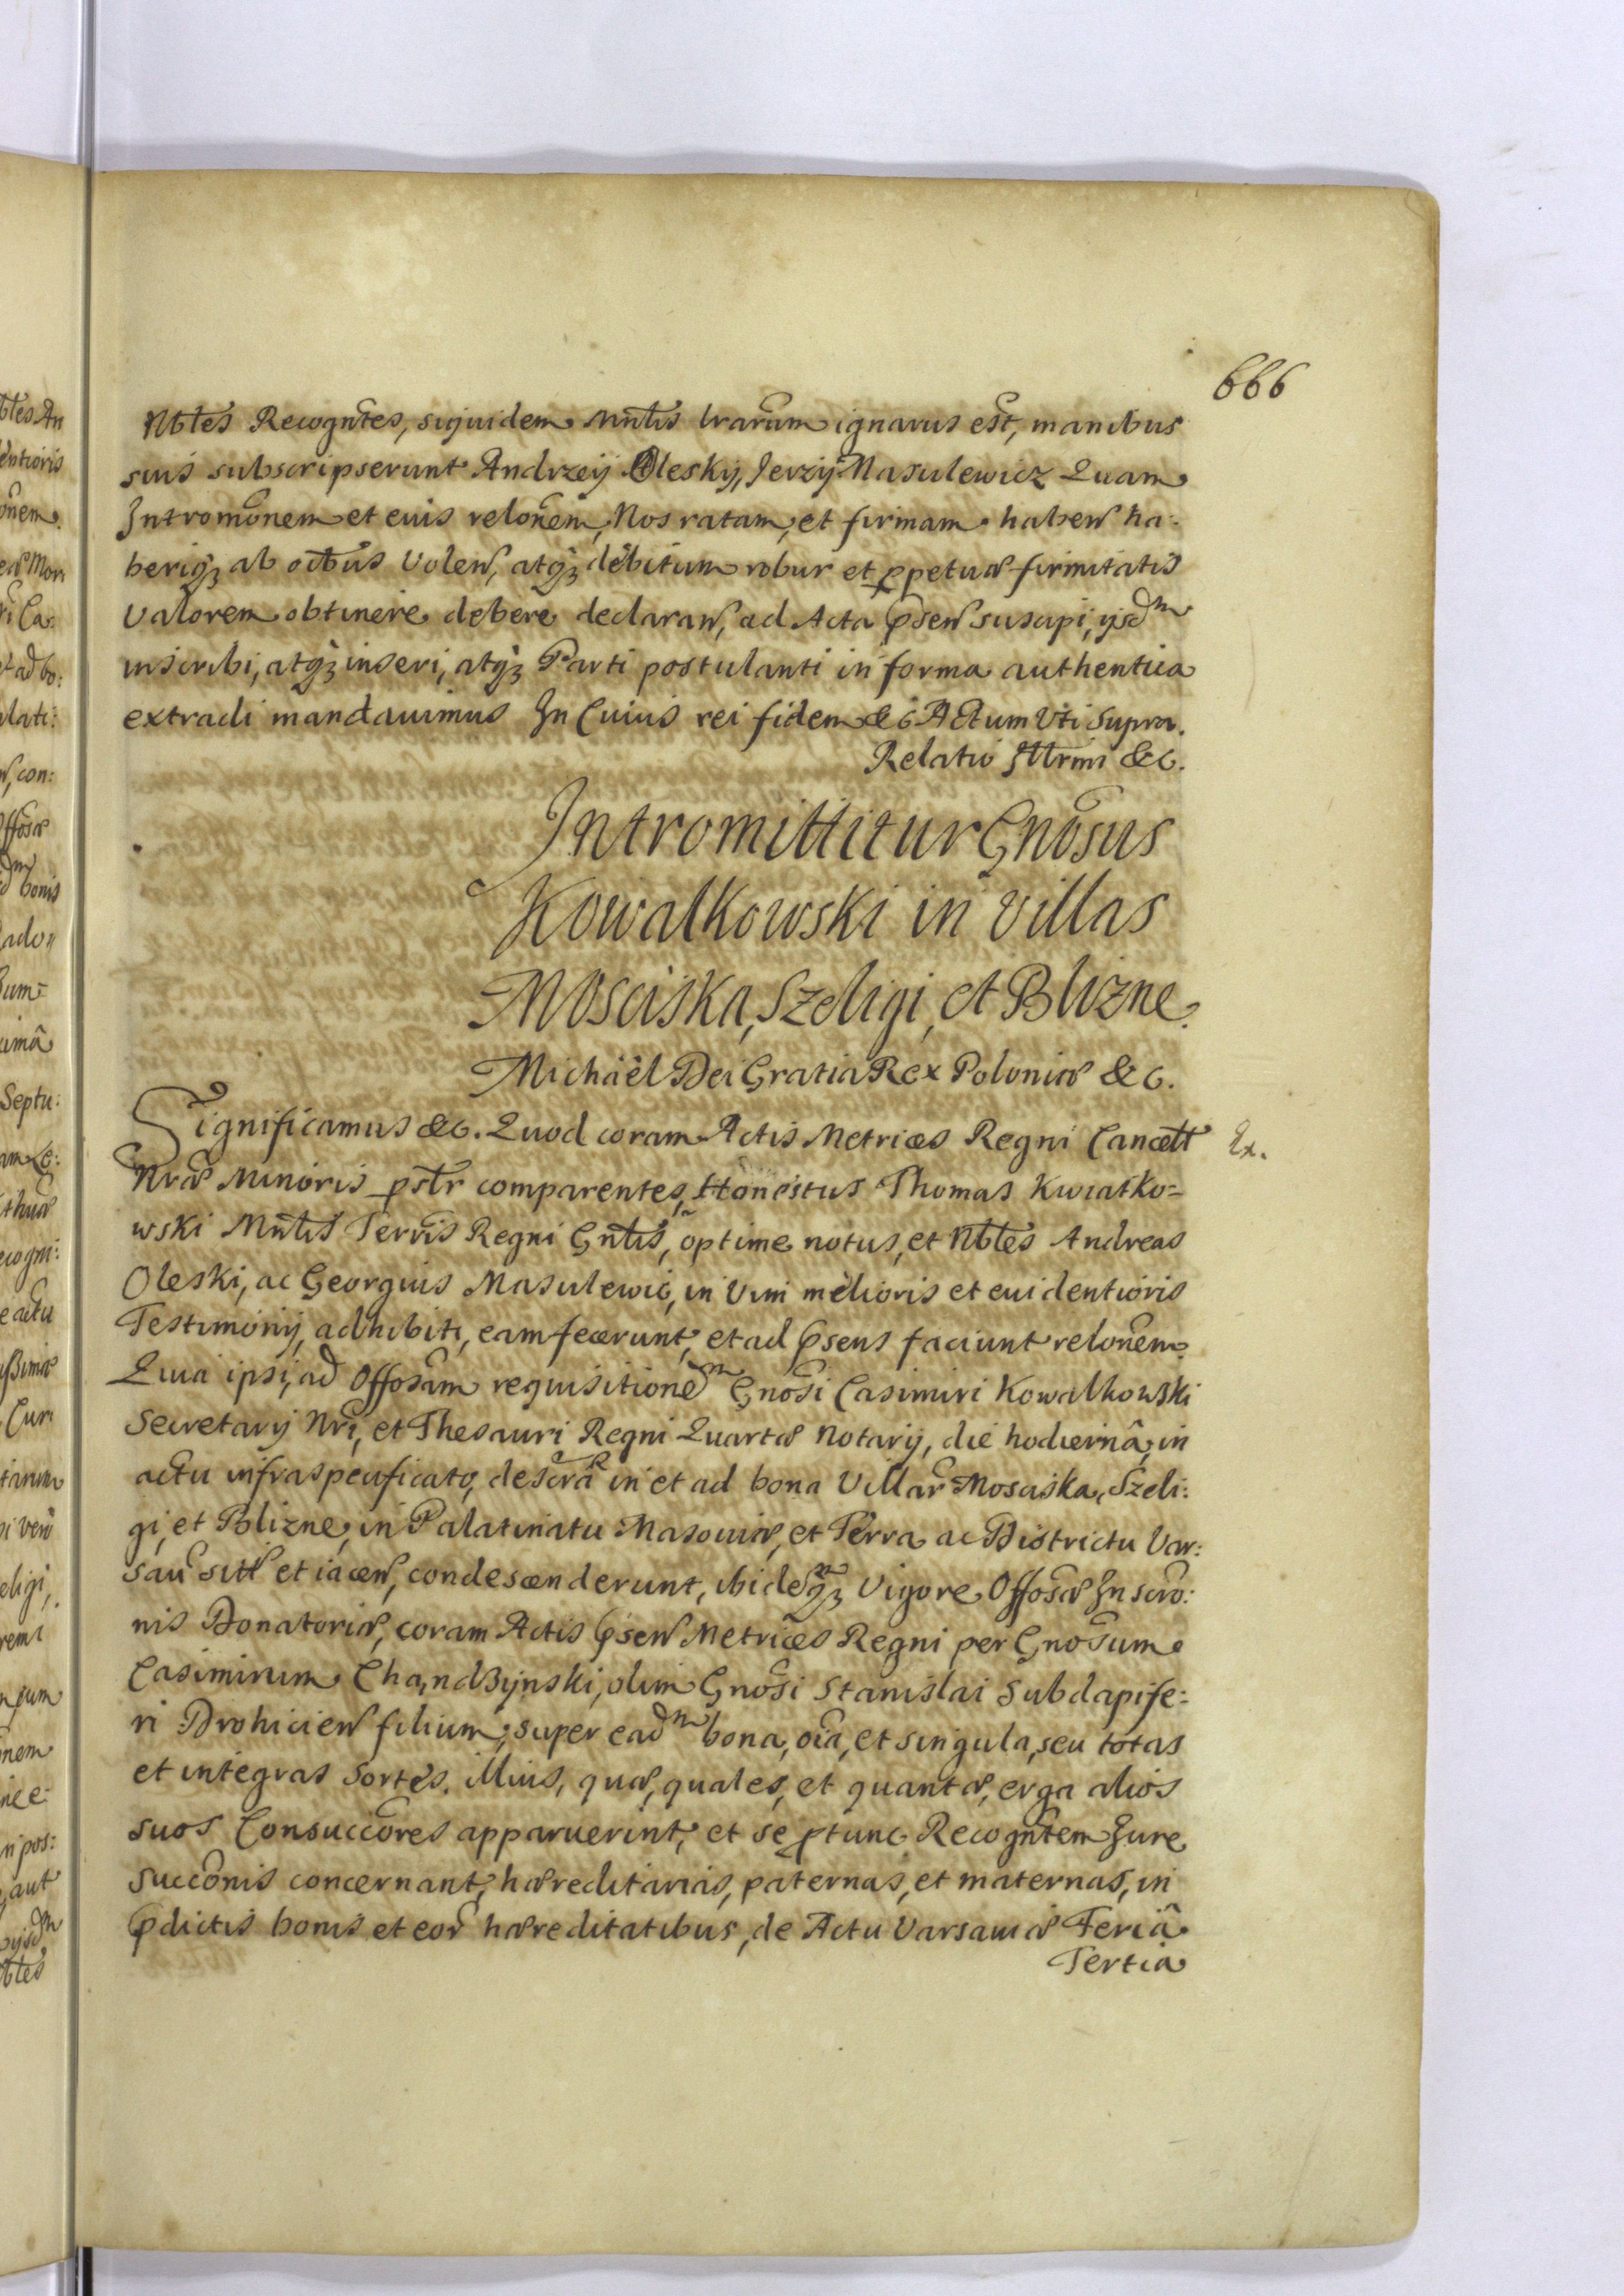 666
Nbtes Recogntes, siquidem Mnlis lrarum ignarus est, manibus
suis subscripserunt Andrzeÿ Olesky, Jerzÿ Masulewicz Quam
Intromõnem et eius relõnem, Nos ratam, et firmam haben ha-
beriq3 ab oibus Volen, atq3 debitum robur et ppetuæ firmitatis
Valorem obtinere debere declaran, ad Acta p̃sen suscipi, ijsdm
inscribi, atq3 inseri, atq3 Parti postulanti in forma authentica
extradi mandavimus In Cuius rei fidem &c Actum Vti Supra.
Relatio Illrmi &c.
Intromittitur Gnõsus
Kowalkowski in Villas
Mosciska, Szeligi, et Blizne.
Michäel Dei Gratia Rex Poloniæ &c.
Significamus &c. Quod coram Actis Metrices Regni Cancell Ex.
Nræ Minoris pstr comparentes, Honestus Thomas Kwiatko=
wski Mnlis Terris Regni Gnlis, optime notus, et Nbtes Andreas
Oleski, ac Georgius Masulewic, in Vim melioris et euidentioris
Testimonÿ, adhibiti, eam fecerunt, et ad p̃sens faciunt relõnem.
Quia ipsi, ad Offosam requisitionem Gnõsi Casimiri Kowalkowski
Secretarÿ Nri, et Thesauri Regni Quartæ Notarÿ, die hodiernâ, in
actu infraspecificato, descrâ in et ad bona Villar Mosciska, Szeli:
gi, et Blizne, in Palatinatu Masouiæ, et Terra ac Districtu Var:
sau sitt et iacen, condescenderunt, ibidemq3 Vigore Offosæ Inscro:
nis Donatoriæ, coram Actis p̃sen Metrices Regni per Gnõsum
Casimirum Chądzÿnski, olim Gnõsi Stanislai Subdapife=
ri Drohicien filium, super eadm bona, oia, et singula, seu totas
et integras Sortes. illius, quæ, quales, et quantæ, erga alios
suos Consuccõres apparuerint, et se ptunc Recogntem Jure
succõnis concernant, hæreditarias, paternas, et maternas, in
p̃dictis bonis et eor hæreditatibus, de Actu Varsauiæ Feriâ
Tertia